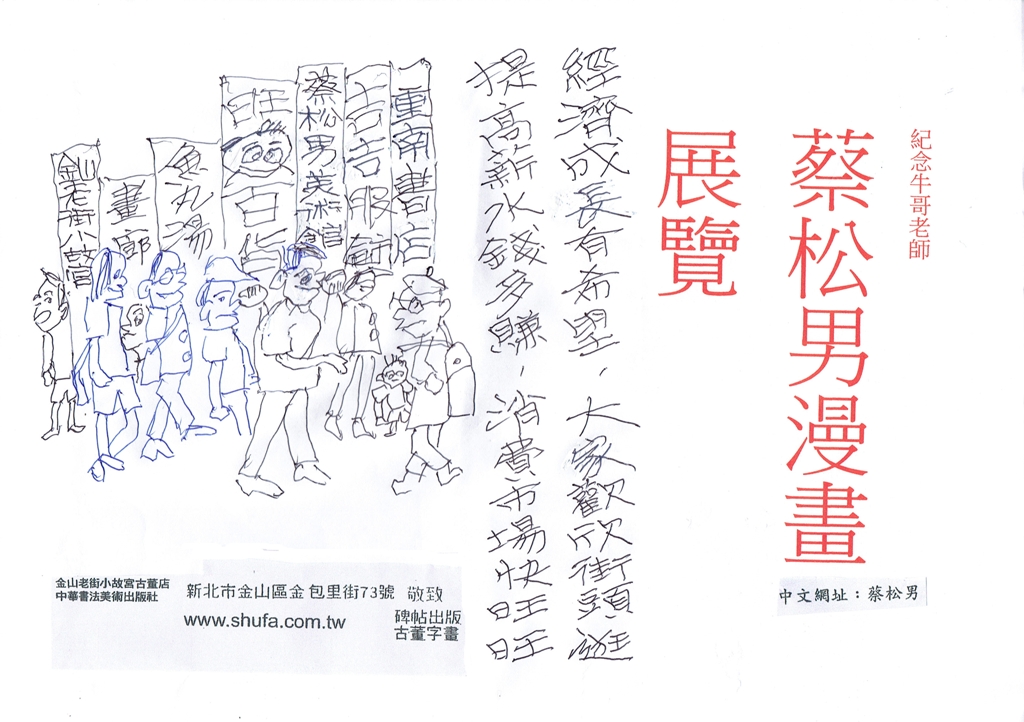 紀念牛哥老師
蔡松男漫畫
展覽
經濟成長有希望，大家歡欣街頭逛
提高薪水錢多賺，消費市場快旺旺
重南書店
吉吉服飾
蔡松男美術館
旺
百货
魚丸湯
畫廊
金山老街小故宮
中文網址：蔡松男
金山老街小故宮古董店
中華書法美術出版社
新北市金山區金包里街73號 敬致
www.shufa.com.tw
碑帖出版
古董字畫